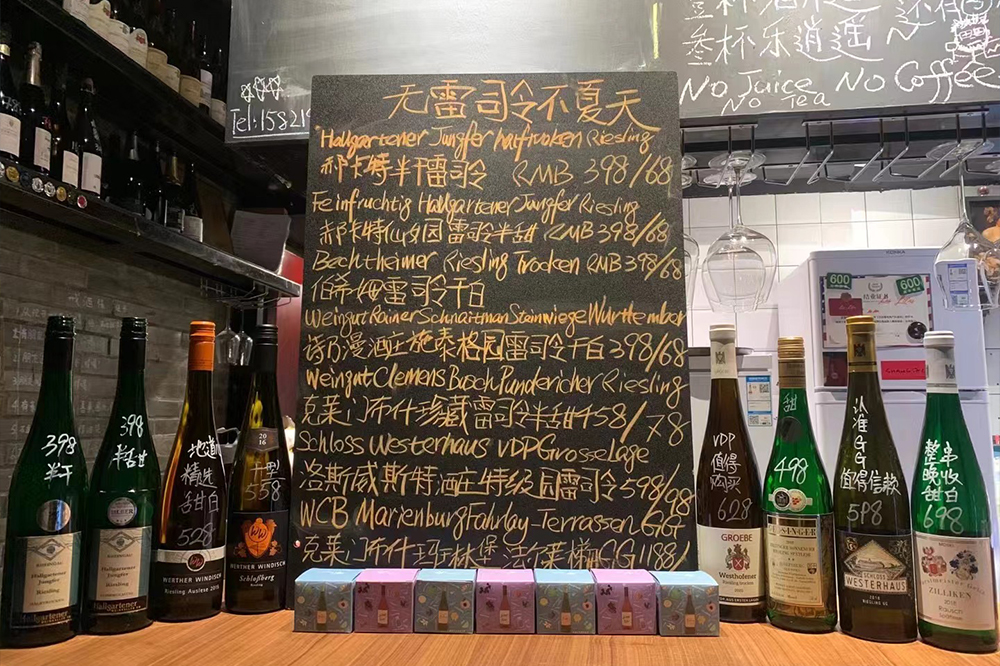 豆杯乐逍遥
No Juice No Coffee
No Tea
Tel:15821
无雷司令不夏天
Hallgartener Jungfer halftrocken Riesling
郝卡特半干雷司令 RMB 398/68
Feinfruchtig Hallgartener Jungfer Riesling
郝卡特仙女园雷司令半甜 RMB 398/68
Bechtheimer Riesling Trocken RMB 398/68
伯希姆雷司令干白
Weingut Rainer Schnaitman Steinwiege Wurttember
诗乃漫酒庄施泰格园雷司令干白 398/68
Weingut Clemens Busch Pundericher Riesling
克莱门布什珍藏雷司令半甜 458/78
Schloss Westerhaus VDP Grosse Lage
洛斯威斯特酒庄特级园雷司令 598/98
WCB Marienburg Fahrlay-Terrassen GG
克莱门布什玛林堡法尔莱梯GG 1188/
398
半干
Hallgartener
Jungfer
Riesling
Hallgartener
398
半甜
Hallgartener
Jungfer
Riesling
Hallgartener
地道
精选
甜白
528
WERTHER WINDISCH
Riesling Auslese 2016
2016
干型
558
WW
WERTHER WINDISCH
Schloßberg
VDP
值得
购买
628
GROEBE
Westhofener
甜
498
认准
GG
值得信赖
598
SCHLOSS
WESTERHAUS
RIESLING GG
整串
晚收
甜白
698
ZILLIKEN
2018
Rausch
600
600